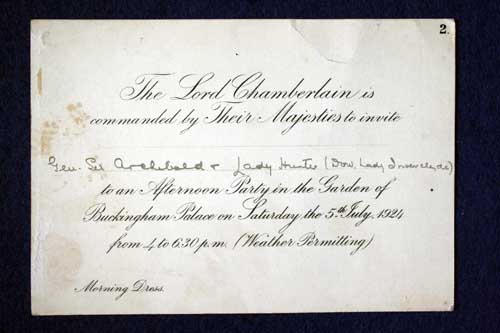 2.
The Lord Chamberlain is
commanded by Their Majesties to invite
Gen. Sir Archibald & Lady Hunter (Dow. Lady Inverclyde)
to an Afternoon Party in the Garden of
Buckingham Palace on Saturday the 5th July, 1924
from 4 to 6.30 p.m. (Weather Permitting)
Morning Dress.